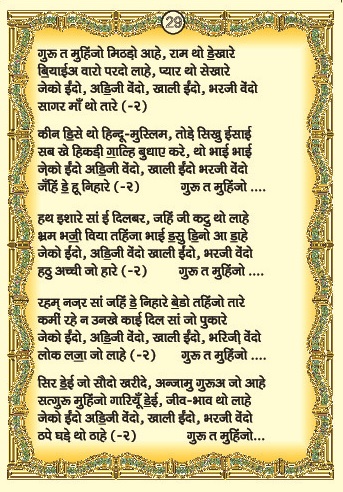 29
गुरू त मुहिंजो मिठड़ो आहे, राम थो ॾेखारे
ॿियाईअ वारो परदो लाहे, प्यार थो सेखारे
जेको ईंदो, अडि॒जी वेंदो, खाली ईंदो, भरजी वेंदो
सागर माँ थो तारे (-२)
कीन ॾिसे थो हिन्दू-मुस्लिम, तोड़े सिखु ईसाई
सब खे हिकड़ी ग॒ाल्हि बुधाए करे, थो भाई भाई
जे़को ईंदो, अडि॒जी वेंदो, खाली ईंदो भरजी वेंदो
जँहिं ॾे हू निहारे (-२) गुरू त मुहिंजो ....
हथ इशारे सां ई दिलबर, जहिं जी कटु थो लाहे
भ्रम भज॒ी विया तहिंजा भाई ॾसु ॾिनो आ ॾाहे
जेको ईंदो, अडि॒जी वेंदो, खाली ईंदो, भरजी वेंदो
हठु अच्ची जो हारे (-२) गुरू त मुहिंजो ....
रहम् नज़र सां जहिं ॾे निहारे बे॒ड़ो तहिंजो तारे
कमी रहे न उनखे काई दिल सां जो पुकारे
जेको ईंदो, अडि॒जी वेंदो, खाली ईंदो, भरिजी़ वेंदो
लोक लज॒ा जो लाहे (-२) गुरू त मुहिंजो ....
सिर ॾेई जो सौदो खरीदे, अन्जामु गुरूअ जो आहे
सत्गुरू मुहिंजो गारियूँ ॾेई, जीव-भाव थो लाहे
जेको ईंदो अडि॒जी वेंदो, खाली ईंदो, भरजी वेंदो
ठपे घड़े थो ठाहे (-२) गुरू त मुहिंजो...